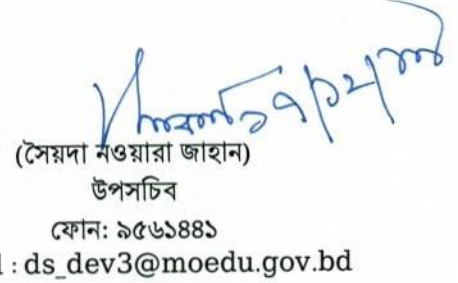 ১৭/১২/
(সৈয়দা নওয়ারা জাহান)
উপসচিব
ফোন: ৯৫৬১৪৪১
l : ds_dev3@moedu.gov.bd